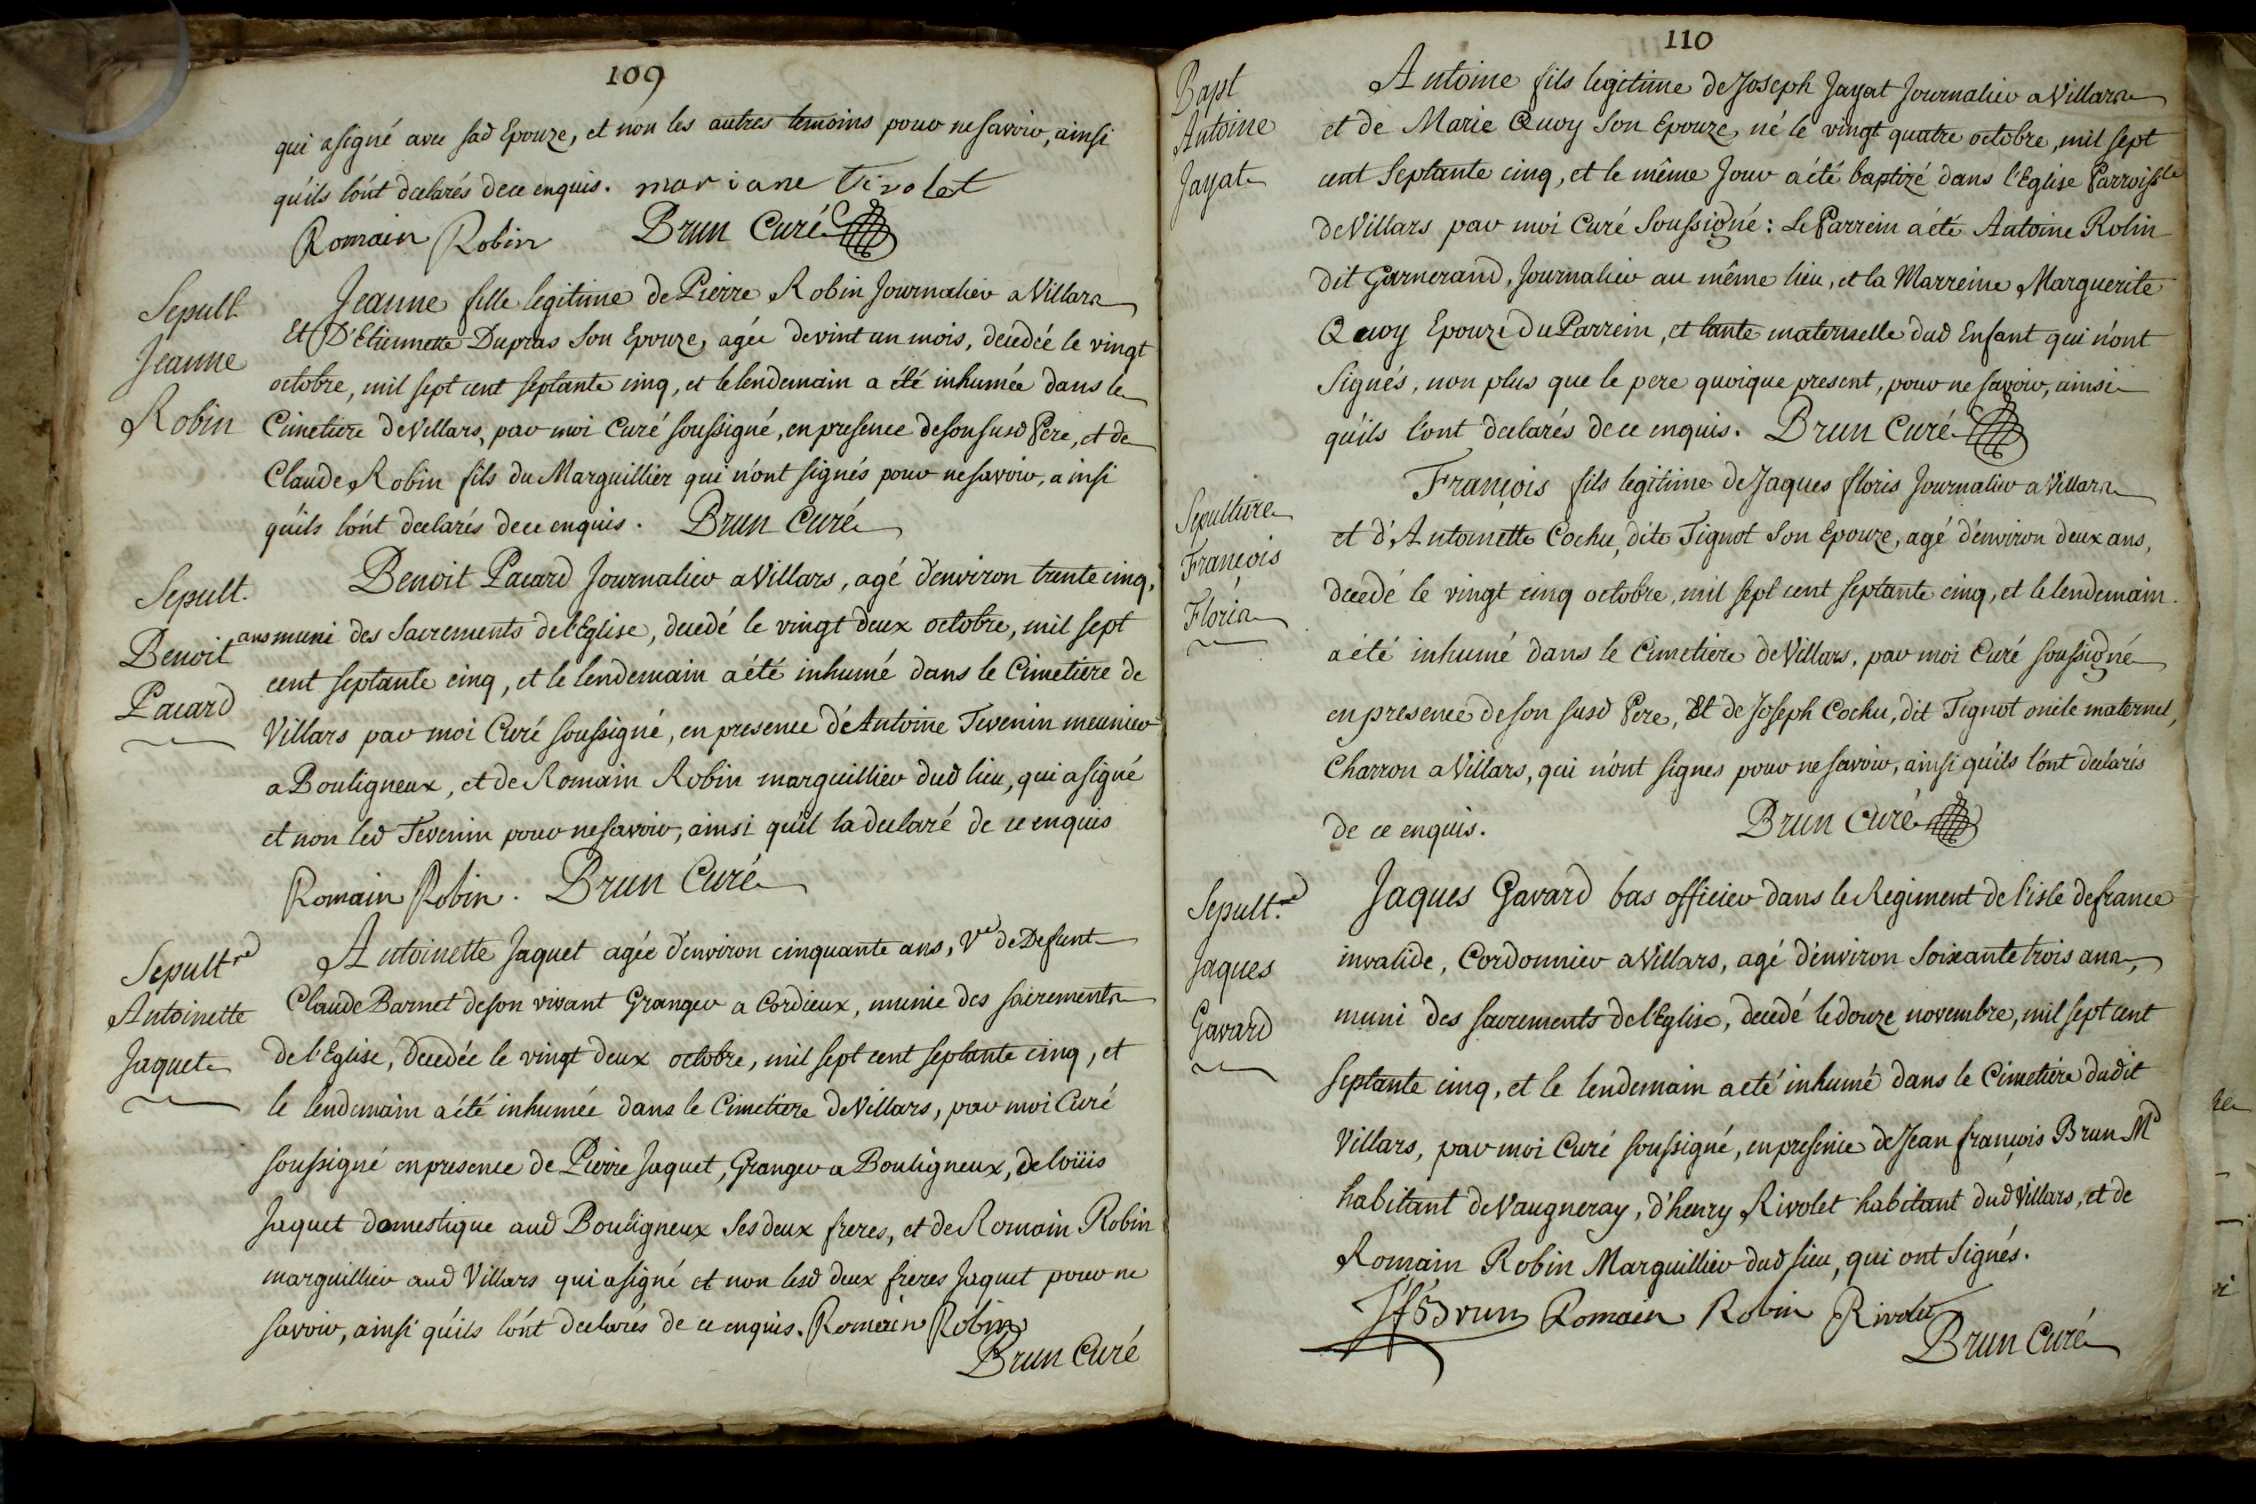 109
qui a signé avec sad Epouze, et non les autres temoins pour ne savoir, ainsi
qu'ils l'ont declarés de ce enquis. mariane Tivolet
Romain Robin Brun Curé
Sepult.
Jeanne
Robin
Jeanne fille legitime de Pierre Robin Journalier a Villars
Et D'Etiennette Dupras son Epouze, agée de vint un mois, decedée le vingt
octobre, mil sept cent septante cinq, et le lendemain a été inhumée dans le
Cimetiere de Villars, par moi Curé soussigné, en presence de son susd Pere, et de
Claude Robin fils du Marguillier qui n'ont signés pour ne savoir, ainsi
qu'ils l'ont declarés de ce enquis. Brun Curé
Sepult.
Benoit
Pacard
Benoit Pacard Journalier a Villars, agé d'environ trente cinq,
ans muni des Sacrements de l'Eglise, decedé le vingt deux octobre, mil sept
cent septante cinq, et le lendemain a été inhumé dans le Cimetiere de
Villars par moi Curé soussigné, en presence d'Antoine Tevenin meunier
a Bouligneux, et de Romain Robin marguillier dud lieu, qui a signé
et non led Tevenin pour ne savoir, ainsi qu'il la declaré de ce enquis
Romain Robin. Brun Curé
Sepultre
Antoinette
Jaquet
Antoinette Jaquet agée d'environ cinquante ans, Ve de Defunt
Claude Barnet de son vivant Granger a Cordieux, munie des sacrements
de l'Eglise, decedée le vingt deux octobre, mil sept cent septante cinq, et
le lendemain a été inhumée dans le Cimetiere de Villars, par moi Curé
soussigné en presence de Pierre Jaquet, Granger a Bouligneux, de loüis
Jaquet domestique aud Bouligneux ses deux freres, et de Romain Robin
marguillier aud Villars qui a signé et non lesd deux freres Jaquet pour ne
savoir, ainsi qu'ils l'ont declarés de ce enquis. Romain Robin
Brun Curé
110
Bapt
Antoine
Jayat
Antoine fils legitime de Joseph Jayat Journalier a Villars
et de Marie Quoy son Epouze, né le vingt quatre octobre, mil sept
cent Septante cinq, et le même Jour a été baptizé dans l'Eglise Parroissle
de Villars par moi Curé Soussigné : Le Parrein a été Antoine Robin
dit Garnerand, Journalier au même lieu, et la Marreine Marguerite
Quoy Epouze Du Parrein, et tante maternelle dud Enfant qui n'ont
Signés, non plus que le pere quoique present, pour ne savoir, ainsi
qu'ils l'ont declarés de ce enquis. Brun Curé
Sepulture
François
Floris
François fils legitime de Jaques floris Journalier a Villars
et d'Antoinette Cochu, dite Tignot son Epouze, agé d'environ deux ans,
decedé le vingt cinq octobre, mil sept cent septante cinq, et le lendemain
a été inhumé dans le Cimetiere de Villars, par moi Curé soussigné
en presence de son susd Pere, Et de Joseph Cochu, dit Tignot oncle maternel,
Charron a Villars, qui n'ont signes pour ne savoir, ainsi qu'ils l'ont declarés
de ce enquis. Brun Curé
Sepult.re
Jaques
Gavard
Jaques Gavard bas officier dans le Regiment de l'isle de france
invalide, Cordonnier a Villars, agé d'environ Soixante trois ans,
muni des sacrements de l'Eglise, decedé le douze novembre, mil sept cent
septante cinq, et le lendemain a eté inhumé dans le Cimetiere dudit
Villars, par moi Curé soussigné, en presence de Jean françois Brun Md
habitant de Vaugneray, d'henry Rivolet habitant dud Villars, et de
Romain Robin Marguillier dud lieu, qui ont Signés.
Jf Brun Romain Robin Rivolet
Brun Curé